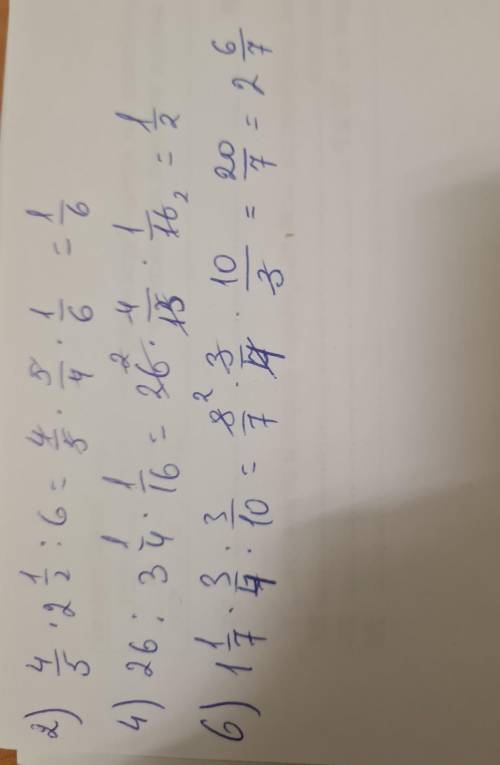 2) 4/5 · 2 1/2 : 6 = 4/5 · 5/4 · 1/6 = 1/6
4) 26 : 3 1/4 · 1/16 = 26 2 · 4/13 · 1/16 2 = 1/2
6) 1 1/7 · 3/4 : 3/10 = 8 2/7 · 3/4 · 10/3 = 20/7 = 2 6/7